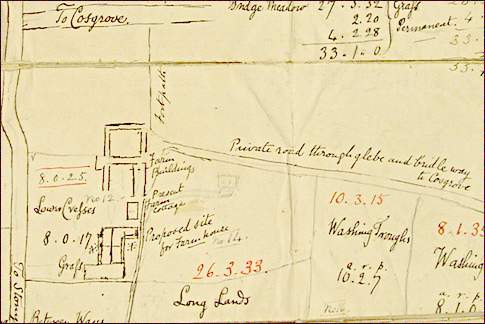 To Cosgrove.
Bridge Meadow 27.3.32
2.20
4.2.28
33.1.0
Grass
Permanent
4.
33.
Footpath
Private road through glebe and bridle way
to Cosgrove
Farm
Buildings
8.0.25.
No 12
Present
Farm
Cottage
Lower Crosses
8.0.17
Proposed site
for Farm house
No 14
Grass
26.3.33.
Long Lands
10.3.15
Washing Troughs
a. r. p.
10.2.7
8.1.35
Washing
a. r. p.
8.1.0
To Stony
Between Ways